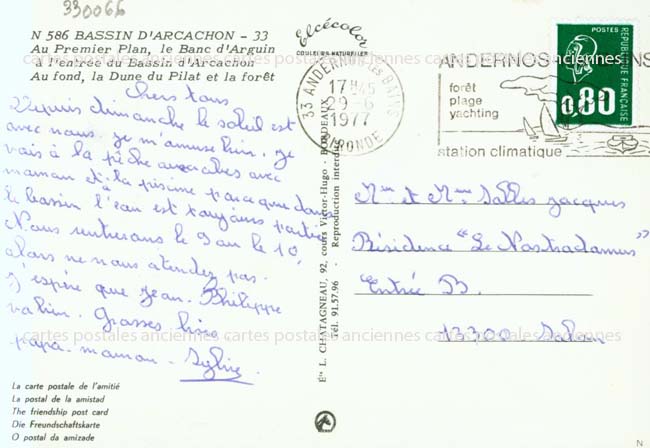 330066
N 586 BASSIN D'ARCACHON - 33
Au Premier Plan, le Banc d'Arguin
à l'entrée du Bassin d'Arcachon
Au fond, la Dune du Pilat et la forêt
Chers tous
Depuis dimanche le soleil est
avec nous. je m'amuse bien. je
vais à la pêche aux crabes avec
maman et à la piscine parce que dans
le bassin l'eau est toujours partie
Nous rentrerons le 9 ou le 10
alors ne nous atendez pas.
J'espère que Jean-Philippe
va bien. Grosses bises
papa. maman. Sylvie
La carte postale de l'amitié
La postal de la amistad
The friendship post card
Die Freundschaftskarte
O postal da amizade
Elcécolor
COULEURS NATURELLES
33 ANDERNOS-LES-BAINS
17H45
29-6
1977
GIRONDE
Éts L. CHATAGNEAU, 92, cours Victor-Hugo - BORDEAUX
Tél. 91.57.96 - Reproduction interdite
ANDERNOS
NS
forêt
plage
yachting
station climatique
POSTES
REPUBLIQUE FRANÇAISE
0,80
Mr et Mme Salles Jacques
Résidence "Le Nostradamus"
Entrée B.
13300 Salon
cartes postales anciennes cartes postales anciennes cartes postales anciennes
N